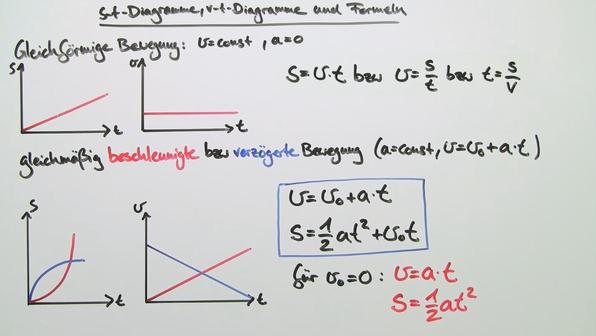 s-t-Diagramme, v-t-Diagramme und Formeln
Gleichförmige Bewegung: v=const, a=0
s
t
v
t
s=v·t bzw v=s/t bzw t=s/v
gleichmäßig beschleunigte bzw verzögerte Bewegung (a=const, v=v₀+a·t)
s
t
v
t
v=v₀+a·t
s=1/2at²+v₀t
für v₀=0: v=a·t
s=1/2at²